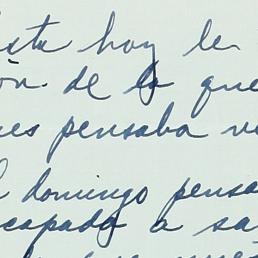 esta hoy le
ión de lo que
ues pensaba v
l domingo pensa
scapada a sa